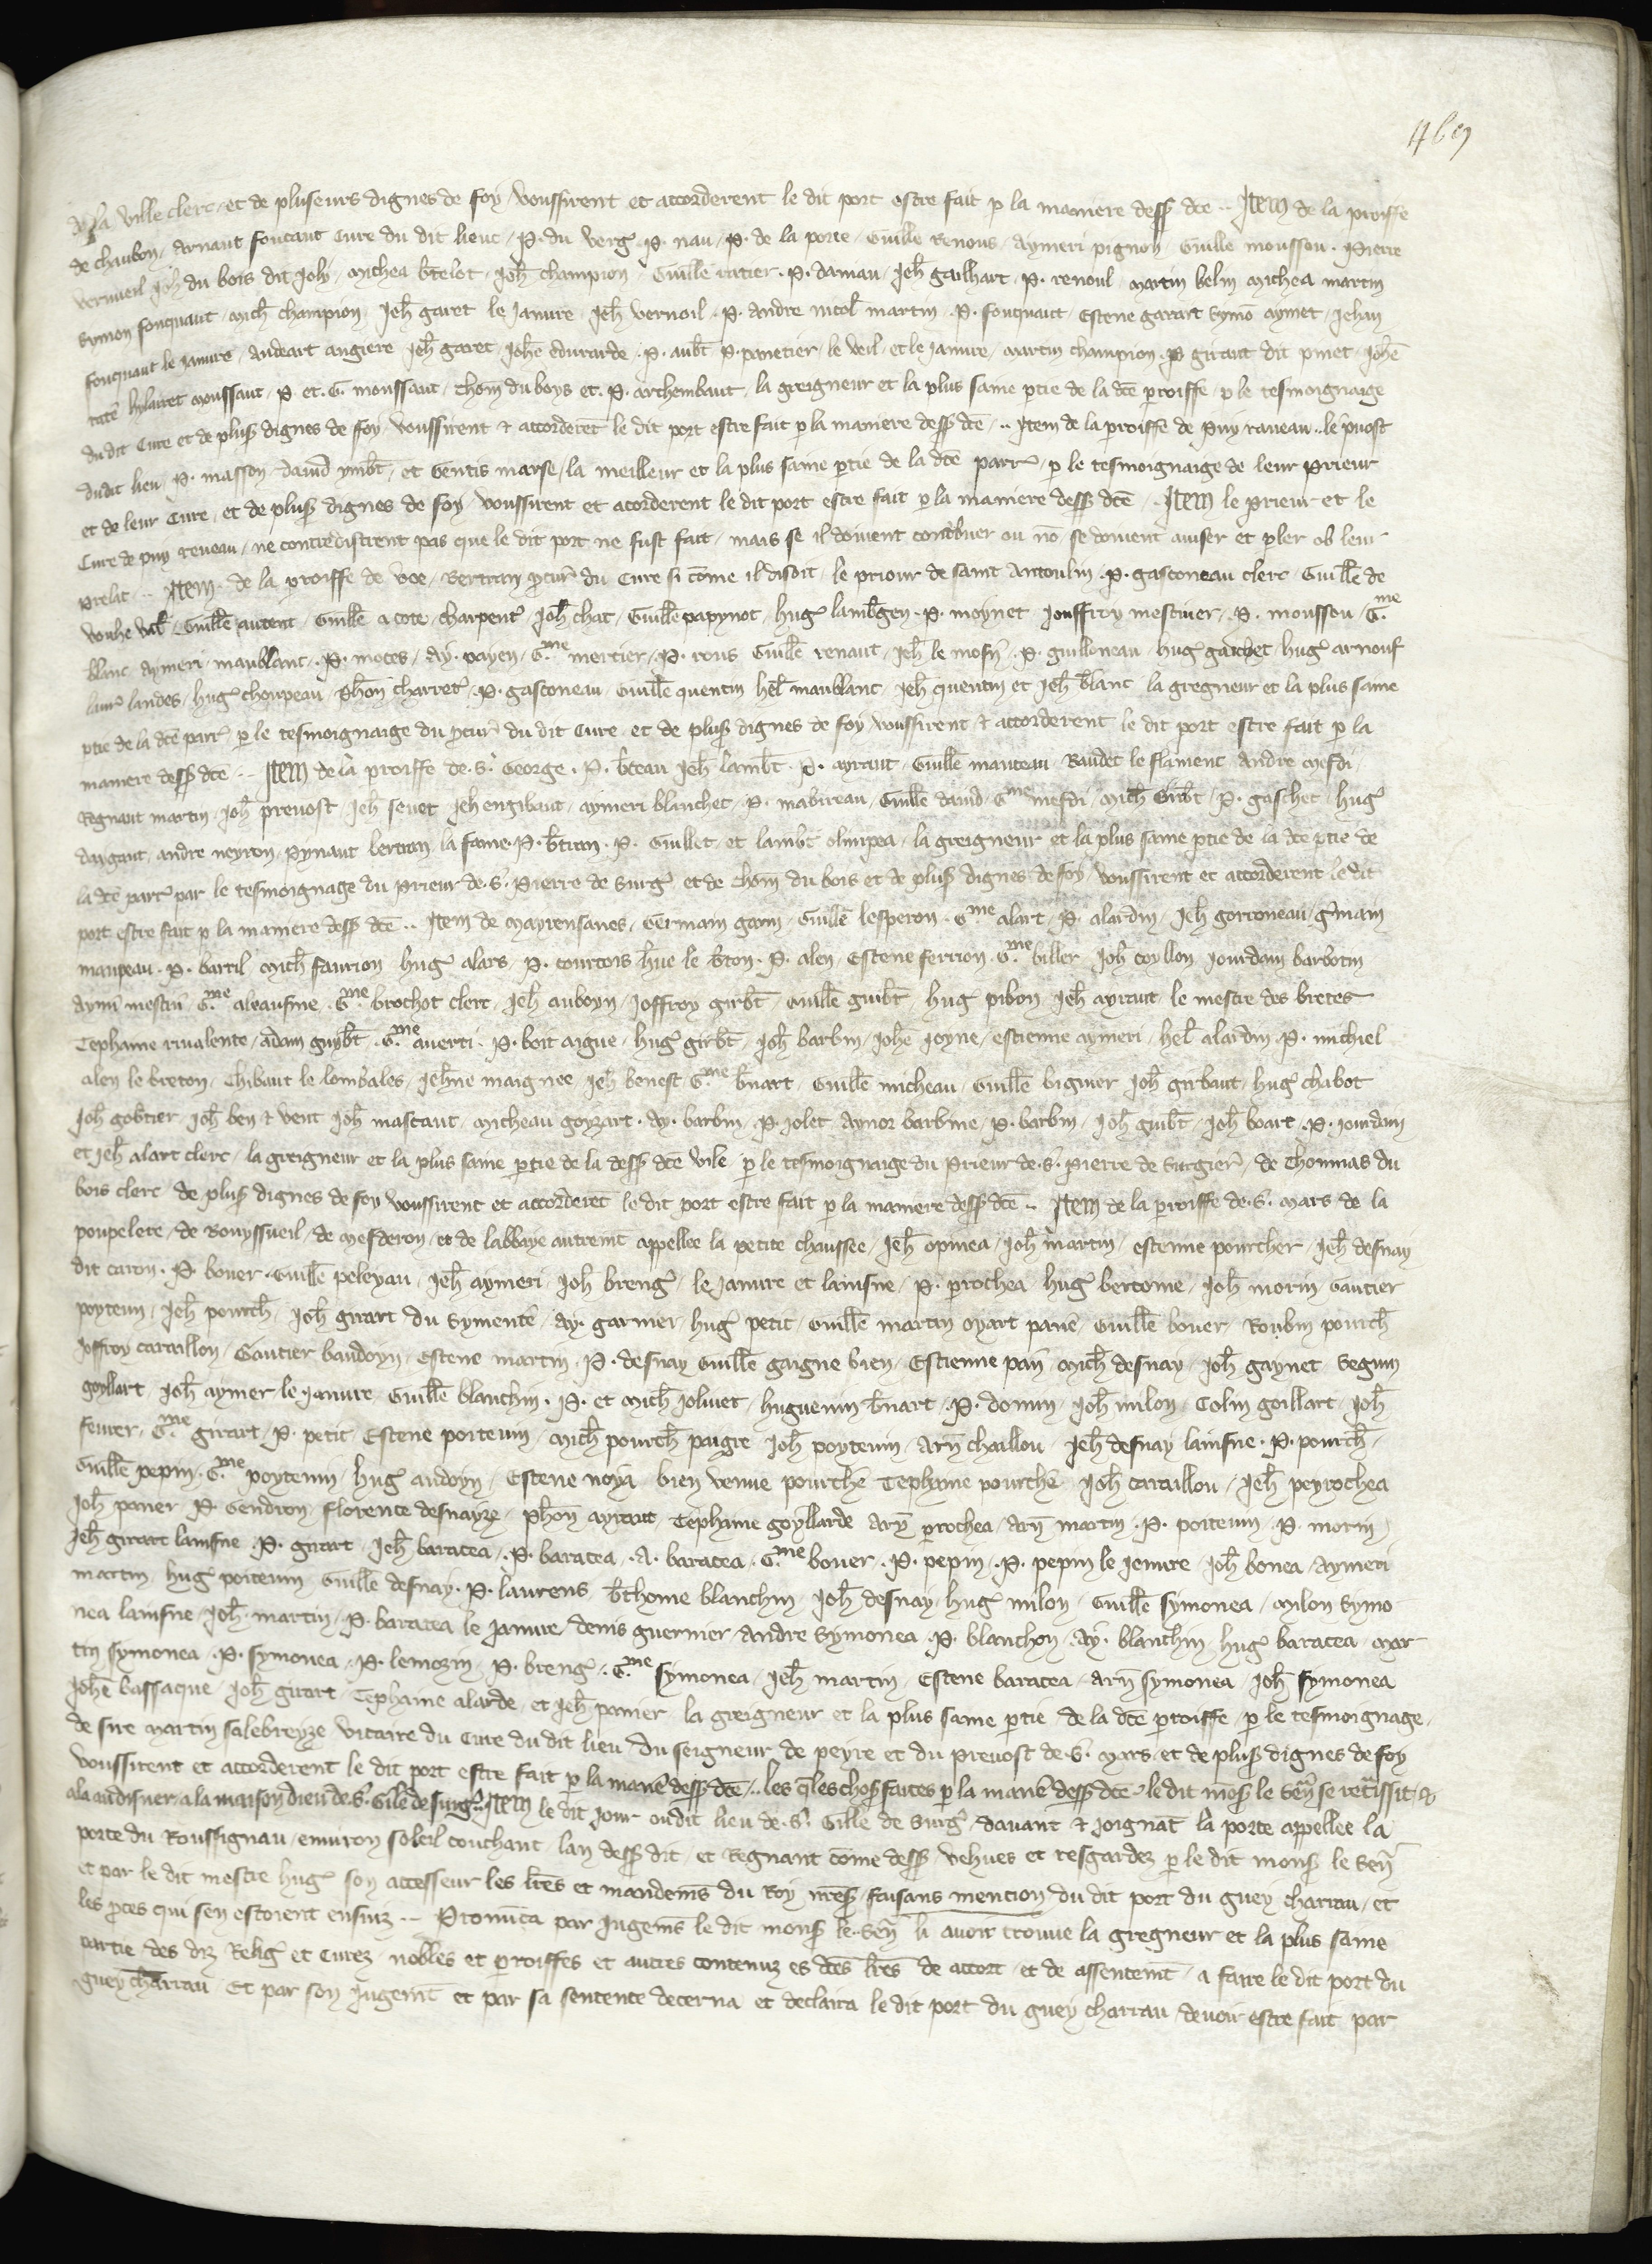 de la ville clerc et de pluseurs dignes de foy voussirent et accorderent le dit port estre fait p la maniere dess dce Item de la proiffe
de chaubon arnaut foucaut Cure du dit lieuc P. du verg P. nau P. de la porte Guille Renous aymeri pignon Guille mousson Pierre
vernueil Joh du bois dit Joly Michea btelot Joh champion Guille ratier P. daniau Jeh gailhart P. renoul martin belin Michea martin
Symon fouquaut Mich champion Jeh garet le Janure Jeh vernoil P. andre nicol martin P. fouquaut Estene garart Symo aymet Jehan
fouquaut le janure audeart augiere Jeh garet Johe edurarde P. aubt P. panetier le veil et le janure martin champion P giraut dit pmet Johe
hylairet moussaut P. et G. moussaut Thom du boys et P. archembaut la greigneur et la plus saine ptie de la dce proiffe p le tesmoignaige
du dit Cure et de plus dignes de foy voussirent & accorderet le dit port estre fait p la maniere dess dce Item de la proiffe de Puy raveau le pvost
dudit lieu P. masson david ymbt et Gentis marse la meilleur et la plus saine ptie de la dce parr p le tesmoignaige de leur Prieur
et de leur Cure et de plus dignes de foy voussirent et acorderent le dit port estre fait p la maniere dess dce Item le Prieur et le
Cure de puy reveau ne contredistrent pas que le dit port ne fust fait mais se il doivent contbuer ou no se doivent auiser et pler ob leur
Prelat Item de la proiffe de voe Bertran pcur du Cure si come il disoit le priour de saint Antoulin P. gasconeau clerc Guille de
vouhe Guille autent Guille a cote charpent Joh chat Guille papynot hug lambgen P. moynet Jouffroy mestiuer P. mousson G.me
blanc aymeri maublanc P. motes Ay. payen G.me mercier P. rous Guille renaut Jeh le mosn P. guilloneau hug gaichet hug arnouf
laur landes hug choupeau Phon charret P. gasconeau Guille quentin hel maublanc Jeh quentin et Jeh blanc la gregneur et la plus saine
ptie de la dce parr p le tesmoignaige du pcur du dit Cure et de plus dignes de foy voussirent & accorderent le dit port estre fait p la
maniere dess dce Item de la proiffe de S. George P. bteau Jeh lambt P. ayraut Guille manteau Baudet le flament andre mesdi
Regnaut martin Joh prevost Jeh seuet Jeh engibaut aymeri blanchet P. mabireau Guille david G.me mesdi Mich Girbt P. gaschet hug
daygaut andre neyron Pynaut bertran la fame P. btran P. Guillet et lambt olimpea la greigneur et la plus saine ptie de la dce ptie de
la dce parr par le tesmoignage du Prieur de S. Pierre de Surg et de Thom du bois et de plus dignes de foy voussirent et accorderent le dit
port estre fait p la maniere dess dce Item de Mayrensanes Germain garin Guille lesperon G.me alart P. alardin Jeh gorroneau gmain
maupeau P. barril Mich faurion hug alars P. courtois hue le bton P. alen Estene ferrion G.me biller Joh coyllon Jourdain barbotin
Aymi mestiu G.me aleausme G.me brochot clerc Jeh auboyn Joffroy girbt Guille guibt hug pibon Jeh ayraut le mestre des bretes
Tephaine rivalente adam guybt G.me auerti P. boit aigue hug girbt Joh barbin Johe Joyne estienne aymeri hel alardin P. michiel
alen le breton Thibaut le lombales Jehne maignee Jeh benest G.me bnart Guille micheau Guille biguier Joh girbaut hug chabot
Joh gobtier Joh ben & vent Joh mascaut Micheau goyzart Ay. barbin P. Jolet aynor barbine P. barbin Joh guibt Joh boart P. Jourdain
et Jeh alart clerc la greigneur et la plus saine ptie de la dess dce vile p le tesmoignaige du Prieur de S. Pierre de Surgier de Thommas du
bois clerc de plus dignes de foy voussirent et accorderet le dit port estre fait p la maniere dess dce Item de la proiffe de S. Mars de la
poupelete de Bouyssueil de Mesderon et de labbaye autremt appellee la petite chaussee Jeh opinea Joh martin estenne pourcher Jeh desnay
dit caron P. bouer Guille peleyau Jeh aymeri Joh breng le janure et lainsne P. prochea hug bertome Joh morin Gautier
poytevin Jeh pourch Joh girart du Symente Ay. garnier hug petit Guille martin oyart pane Guille bouer Roubin pourch
Joffroy carcaillon Gautier baudoyn Estene martin P. desnay Guille gaigne bien Estienne pan Mich desnay Joh gaynet Seguin
goyllart Joh aymer le janure Guille blanchin P. et Mich Jolivet huguenin bnart P. donin Joh milon Colin goillart Joh
feurer G.me girart P. petit Estene poitevin Mich pourch paigre Joh poytevin Arn chaillou Jeh desnay lainsne P. pourch
Guille pepin G.me poytevin hug audoyn Estene noya bien venue pourche Tephaine pourche Joh carcaillou Jeh peyrochea
Joh paner P. Gendron florence desnayze Phon ayraut Tephaine goyllarde Arn prochea Arn martin P. poitevin P. morin
Jeh girart lainsne P. girart Jeh baracea P. baracea A. baracea G.me bouer P. pepin P. pepin le jenure Joh bonea Aymeri
martin hug poitevin Guille desnay P. laurens bthome blanchin Joh desnay hug milon Guille Symonea Milon Symo
nea lainsne Joh martin P. baracea le janure denis guermer Andre Symonea P. blanchon Ay. blanchin hug baracea Mar
tin Symonea P. symonea P. lemozin P. breng G.me symonea Jeh martin Estene baracea Arn symonea Joh symonea
Johe bassaque Joh girart Tephaine alarde et Jeh panier la greigneur et la plus saine ptie de la dce proiffe p le tesmoignage
de sire Martin salebreyze vicaire du Cure du dit lieu du seigneur de peyre et du prevost de S. Mars et de plus dignes de foy
voussirent et accorderent le dit port estre fait p la mane dess dce les qles chos faites p la mane dess dce le dit mos le Sen se retissit &
ala au disner a la maison dieu de S. Gile de Surg Item le dit jour ou dit lieu de S. Gille de Surg davant & joignat la porte appellee la
porte du Roussignau environ soleil couchant lan dess dit et Regnant come dess vehues et resgardez p le dit mons le Sen
et par le dit mestre hug son accesseur les lres et mandems du Roy nres faisans mention du dit port du guey charrau et
les pces qui sen estoient ensuiz Pronuca par Jugems le dit mons le Sen li avoir trouve la gregneur et la plus saine
partie des diz Relig et Curez nobles et proiffes et autres contenuz es dces lres de accort et de assentemt a faire le dit port du
guey charrau Et par son jugemt et par sa sentence decerna et declaira le dit port du guey charrau devoir estre fait par